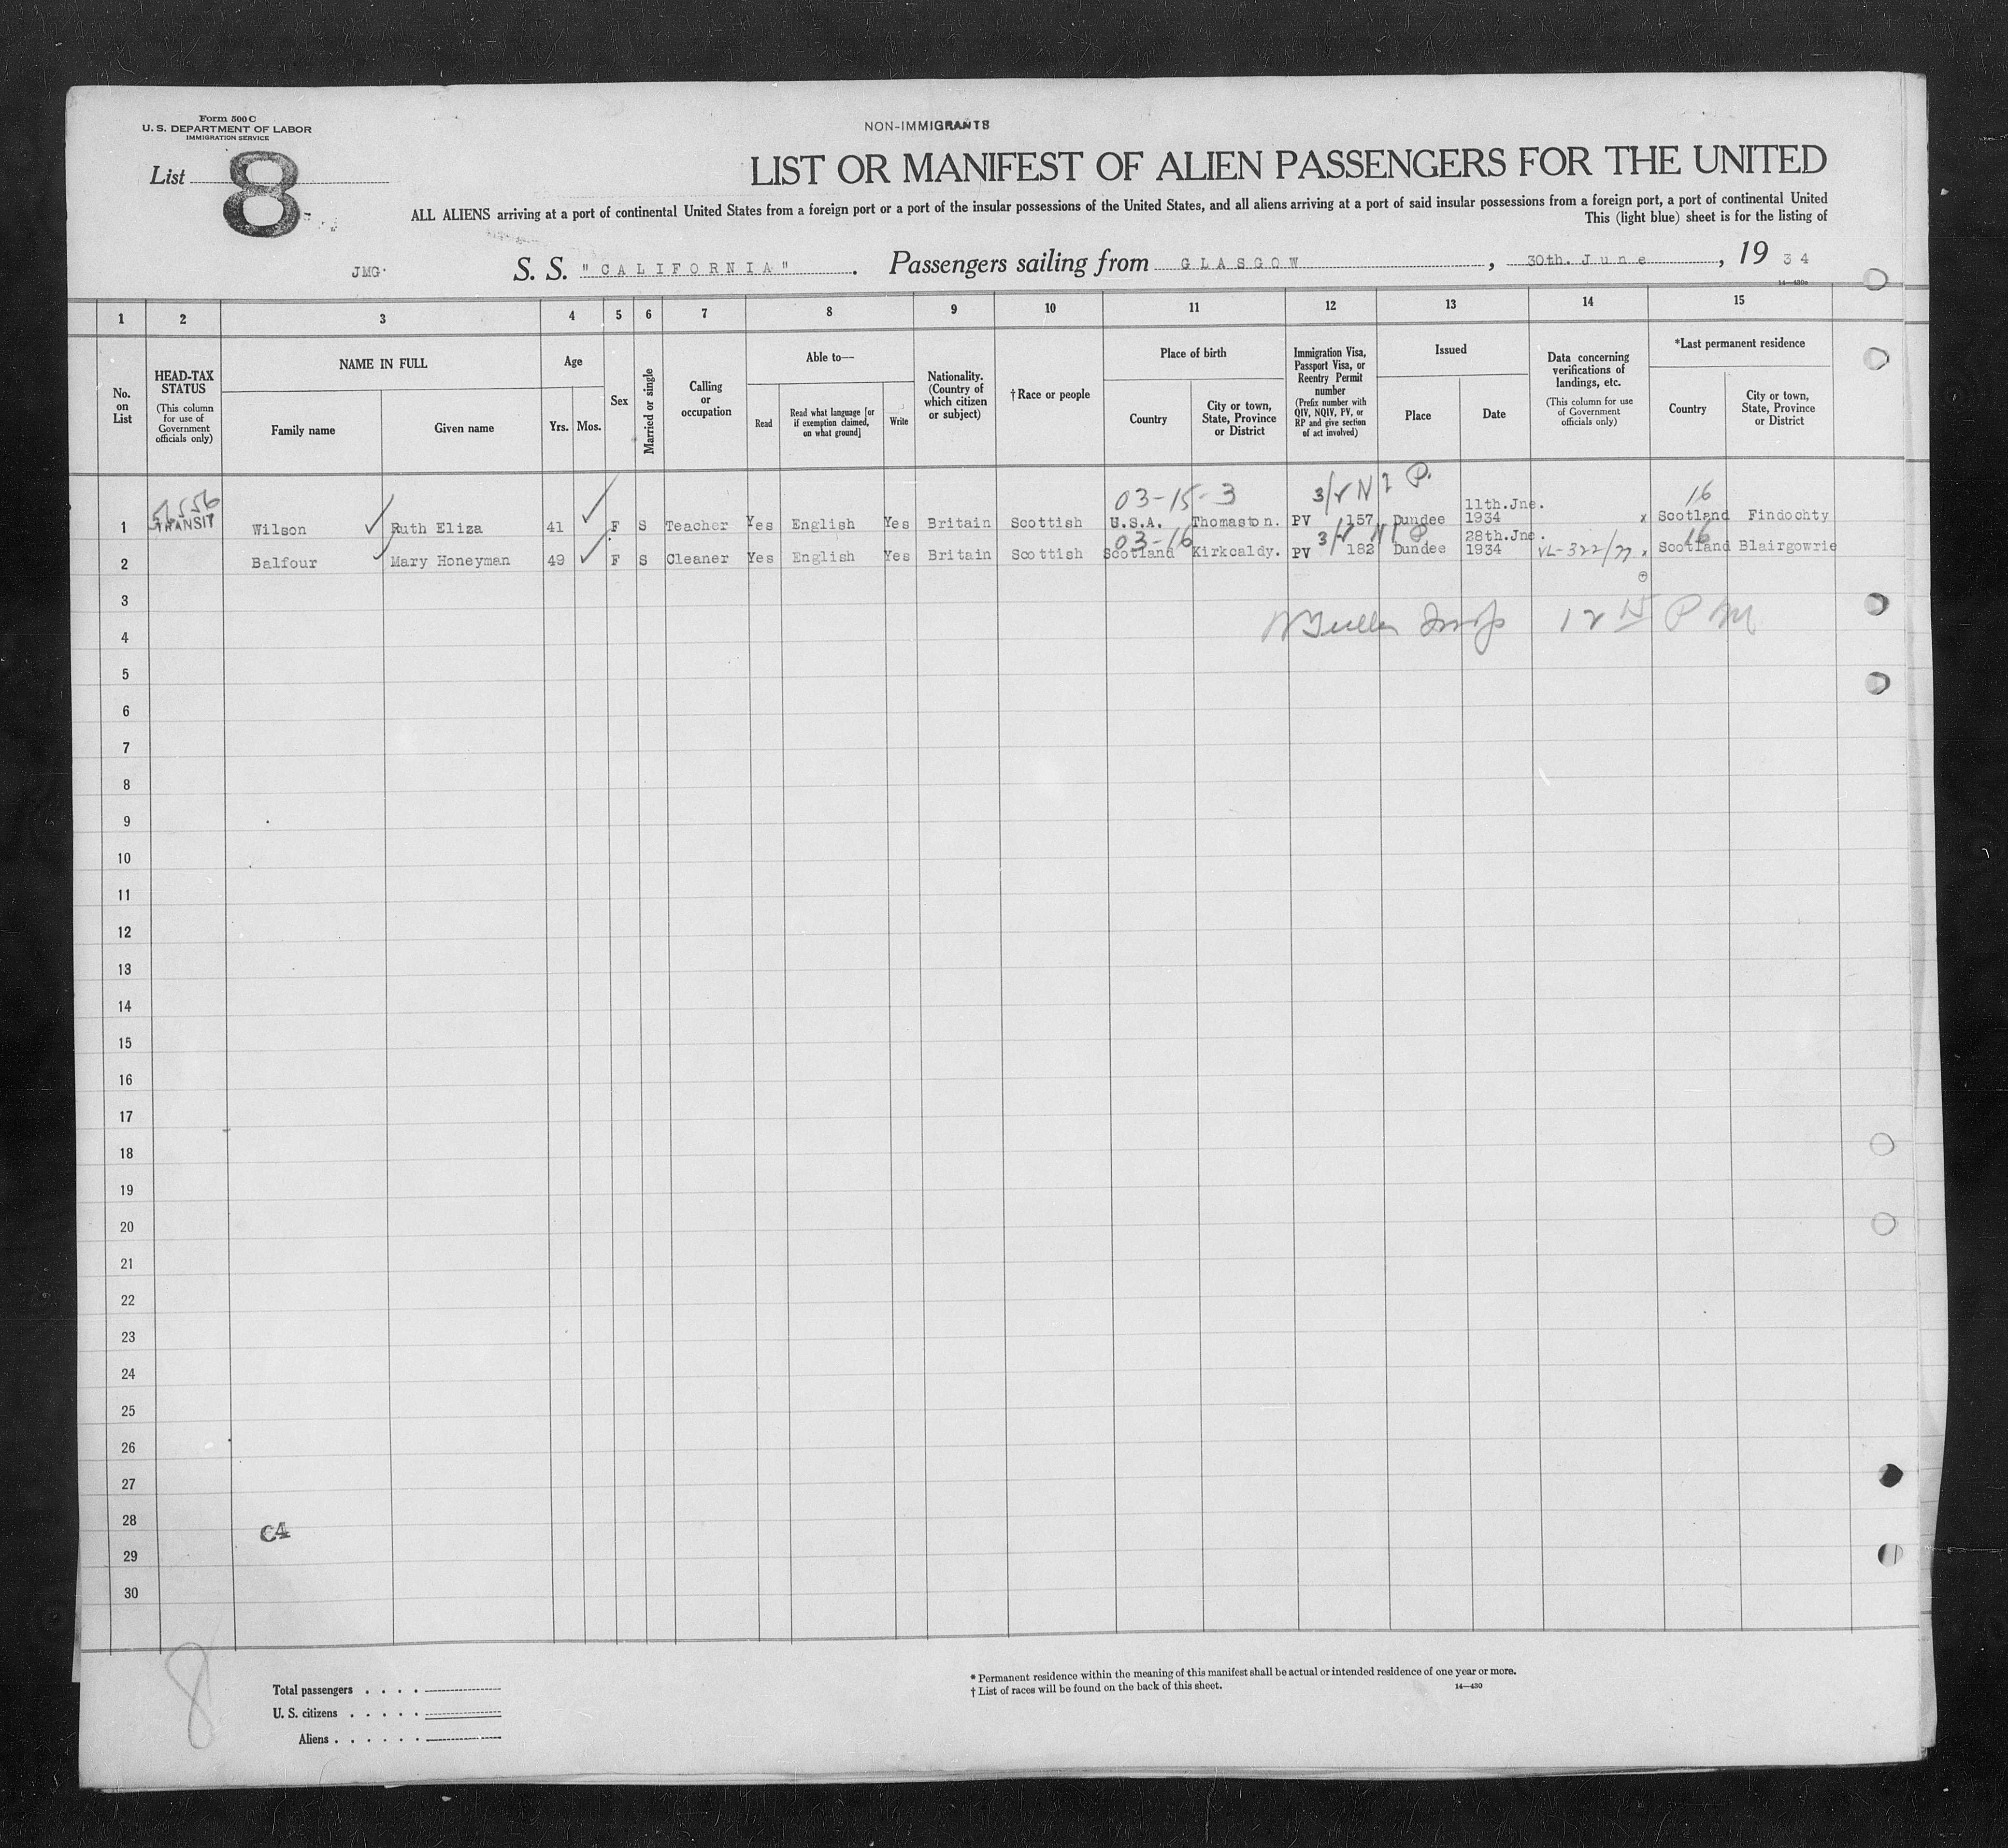 Form 500 C
U. S. DEPARTMENT OF LABOR
IMMIGRATION SERVICE
NON-IMMIGRANTS
List 8
LIST OR MANIFEST OF ALIEN PASSENGERS FOR THE UNITED
ALL ALIENS arriving at a port of continental United States from a foreign port or a port of the insular possessions of the United States, and all aliens arriving at a port of said insular possessions from a foreign port, a port of continental United
This (light blue) sheet is for the listing of
JMG. S. S. "CALIFORNIA". Passengers sailing from GLASGOW, 30th. June, 19 34
14—430a
1 2 3 4 5 6 7 8 9 10 11 12 13 14 15
No. on List
HEAD-TAX STATUS (This column for use of Government officials only)
NAME IN FULL
Family name
Given name
Age
Yrs.
Mos.
Sex
Married or single
Calling or occupation
Able to—
Read
Read what language [or if exemption claimed, on what ground]
Write
Nationality. (Country of which citizen or subject)
† Race or people
Place of birth
Country
City or town, State, Province or District
Immigration Visa, Passport Visa, or Reentry Permit number (Prefix number with QIV, NQIV, PV, or RP and give section of act involved)
Issued
Place
Date
Data concerning verifications of landings, etc. (This column for use of Government officials only)
*Last permanent residence
Country
City or town, State, Province or District
03-15-3 P. 16
1 TRANSIT Wilson Ruth Eliza 41 F S Teacher Yes English Yes Britain Scottish U.S.A. Thomaston. PV 157 Dundee 11th.Jne. 1934 x Scotland Findochty
03-16 16
2 Balfour Mary Honeyman 49 F S Cleaner Yes English Yes Britain Scottish Scotland Kirkcaldy. PV 182 Dundee 28th.Jne. 1934 VL-322/77 x Scotland Blairgowrie
3
12 15 P M
4
5
6
7
8
9
10
11
12
13
14
15
16
17
18
19
20
21
22
23
24
25
26
27
28
C4
29
30
8
Total passengers
U. S. citizens
Aliens
* Permanent residence within the meaning of this manifest shall be actual or intended residence of one year or more.
† List of races will be found on the back of this sheet.
14—430